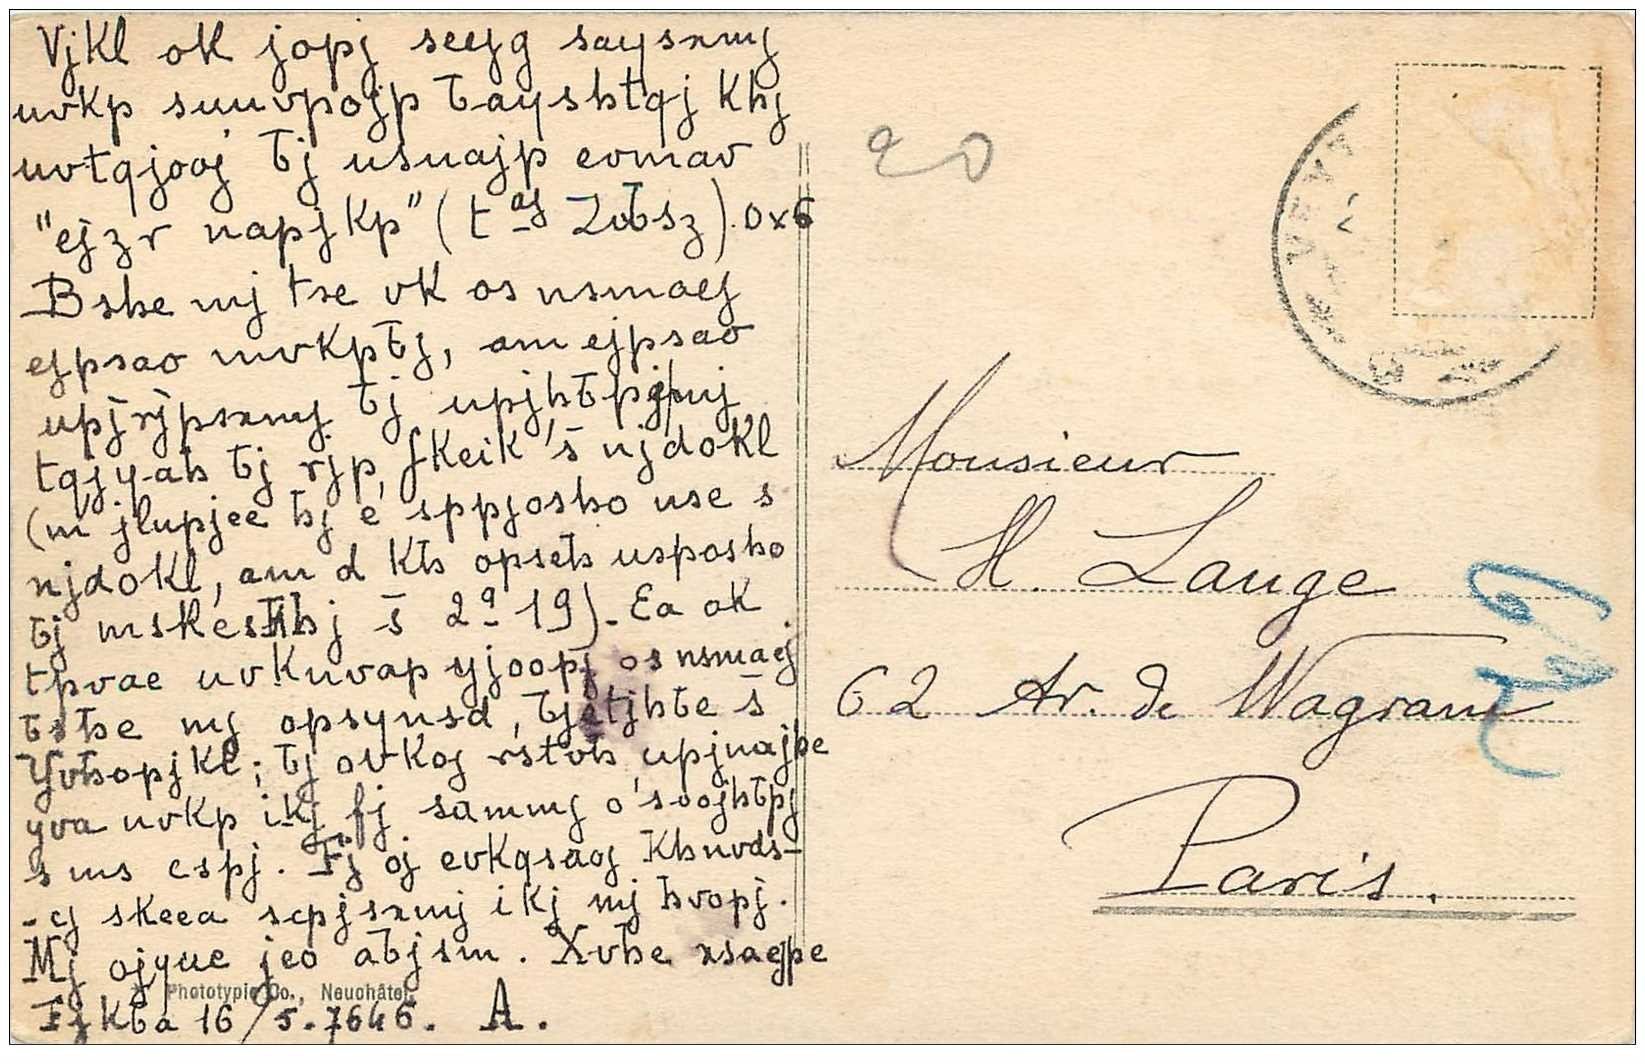 Vjkl ok jopj seyg saysxmj
uvkp suuvpojp tayshtqj khj
uvtqjooj tj usuajp evmav
"ejzr napjkp" (t as Zotsz). 0x6
Bshe mj tse vk os nsmaej
ejpsao mvkptj, am ejpsao
upjrjpsxmj tj upjhtpj mj
tqjyah tj rjp, fkeik's njdokl
(m jlupjee hj e sppjosho use s
njdokl, am d kh opseh usposho
tj mskes hj s 2º 19). Ea ok
tpvae uvkuvap yjoopj os nsmaej
tshe mj opsynsd, tjetjhte s
Yvhopjkl; tj ovkoj rstvh upjuajpe
yva uvkp ikj fj sammj o'soojhtpj
s ms espj. Fj oj evkqsaoj khuvds-
-ej skeea scpjsxmj ikj mj hvopj.
Mj ojyue jeo atjsm. Xvhe xsaejpe
Phototypie Co., Neuchâtel.
Fjkta 16/5.7646. A.
20
VEVEY
Monsieur
H. Lange
62 Av. de Wagram
Paris.